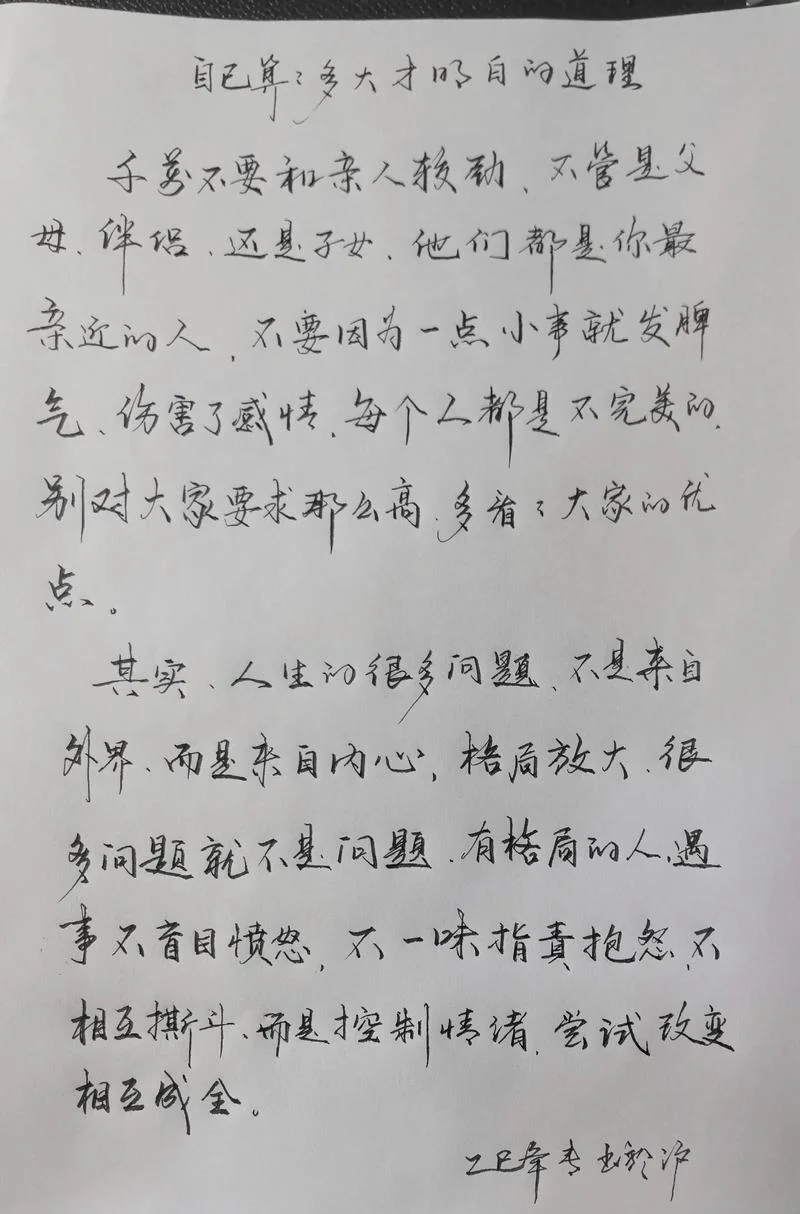 自己算算多大才明白的道理
千万不要和亲人较劲、不管是父
母、伴侣、还是子女、他们都是你最
亲近的人，不要因为一点小事就发脾
气、伤害了感情、每个人都是不完美的、
别对大家要求那么高、多看看大家的优
点。
其实、人生的很多问题、不是来自
外界、而是来自内心，格局放大、很
多问题就不是问题、有格局的人、遇
事不盲目愤怒，不一味指责抱怨、不
相互撕斗、而是控制情绪、尝试改变
相互成全。
乙巳年 书于沪